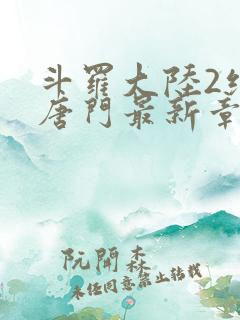 斗羅大陸2
唐門最新章
阮開森
未经同意禁止转载